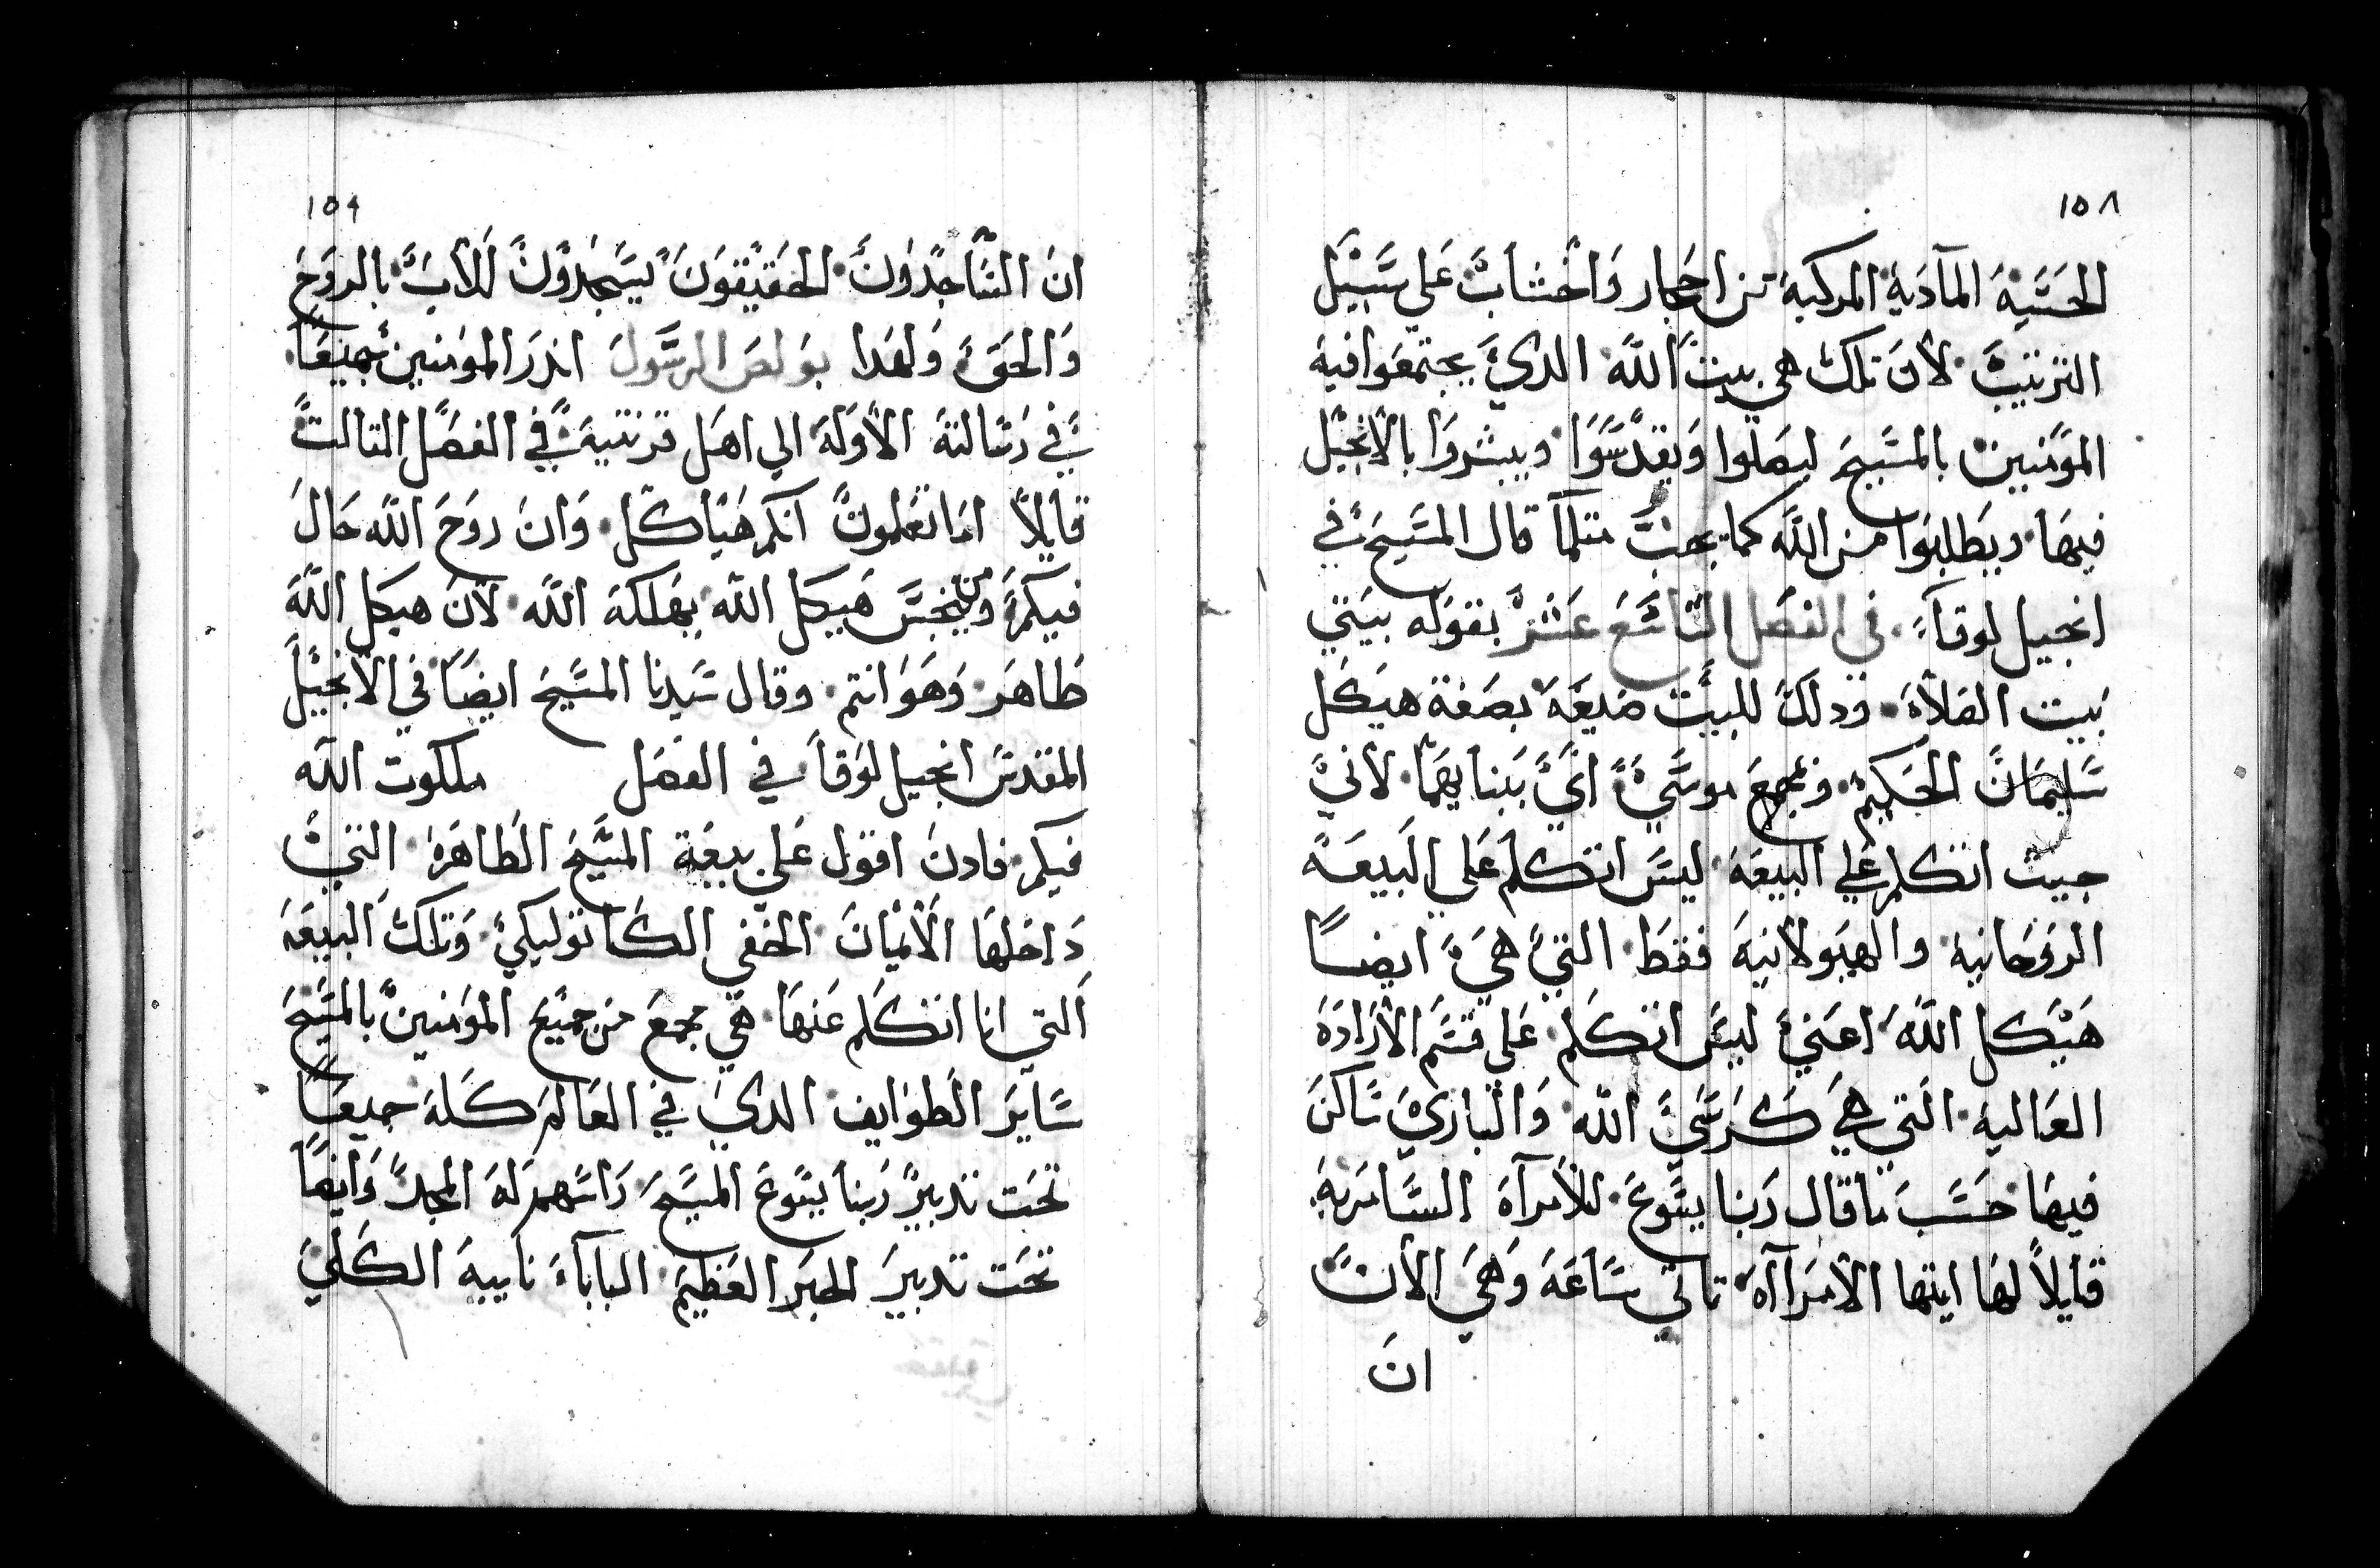 ١٥٨
الحسية المآدية المركبة من احجار واخشاب علي سبيل
الترتيب لان تلك هي بيت الله الدي يجتمعوا فيه
المومنين بالمسيح ليصلوا ويقدسوا ويبشروا بالانجيل
فيها ويطلبوا من الله كما يجب متلما قال المسيح في
انجيل لوقاء في الفصل التاسع عشر بقوله بيتي
بيت الصلاة ودلك للبيت صنعة بصفة هيكل
سليمان الحكيم ومجمع موسي اي بنايهما لاني
حيت اتكلم علي البيعة ليس اتكلم علي البيعة
الروحانية والهيولانية فقط التي هي ايضا
هيكل الله اعني ليس اتكلم علي قسم الارادة
العالية التي هي كرسي الله والباري ساكن
فيها حسب ما قال ربنا يسوع للامرآة السامرية
قايلاً لها ايتها الامراآة تاتي ساعة وهي الان
ان
١٥٩
ان الساجدون الحقيقون يسجدون للاب بالروح
والحق ولهدا بولص الرسول اندر المومنين جميعا
في رسالته الاولة الي اهل قرنتية في الفصل التالت
قايلاً اما تعلمون انكم هياكل وان روح الله حال
فيكم ومن ينجس هيكل الله يهلكه الله لان هيكل الله
طاهر وهو انتم وقال سيدنا المسيح ايضا في الانجيل
المقدس انجيل لوقا في الفصل ملكوت الله
فيكم فادن اقول علي بيعة المسيح الطاهرة التي
داخلها الايمان الحقي الكاتوليكي وتلك البيعة
التي انا اتكلم عنها هي مجمع من جميع المومنين بالمسيح
ساير الطوايف الدي في العالم كله جميعا
تحت تدبير ربنا يسوع المسيح راسهم له المجد وايضا
تحت تدبير الحبر العظيم الباباء نايبه الكلي